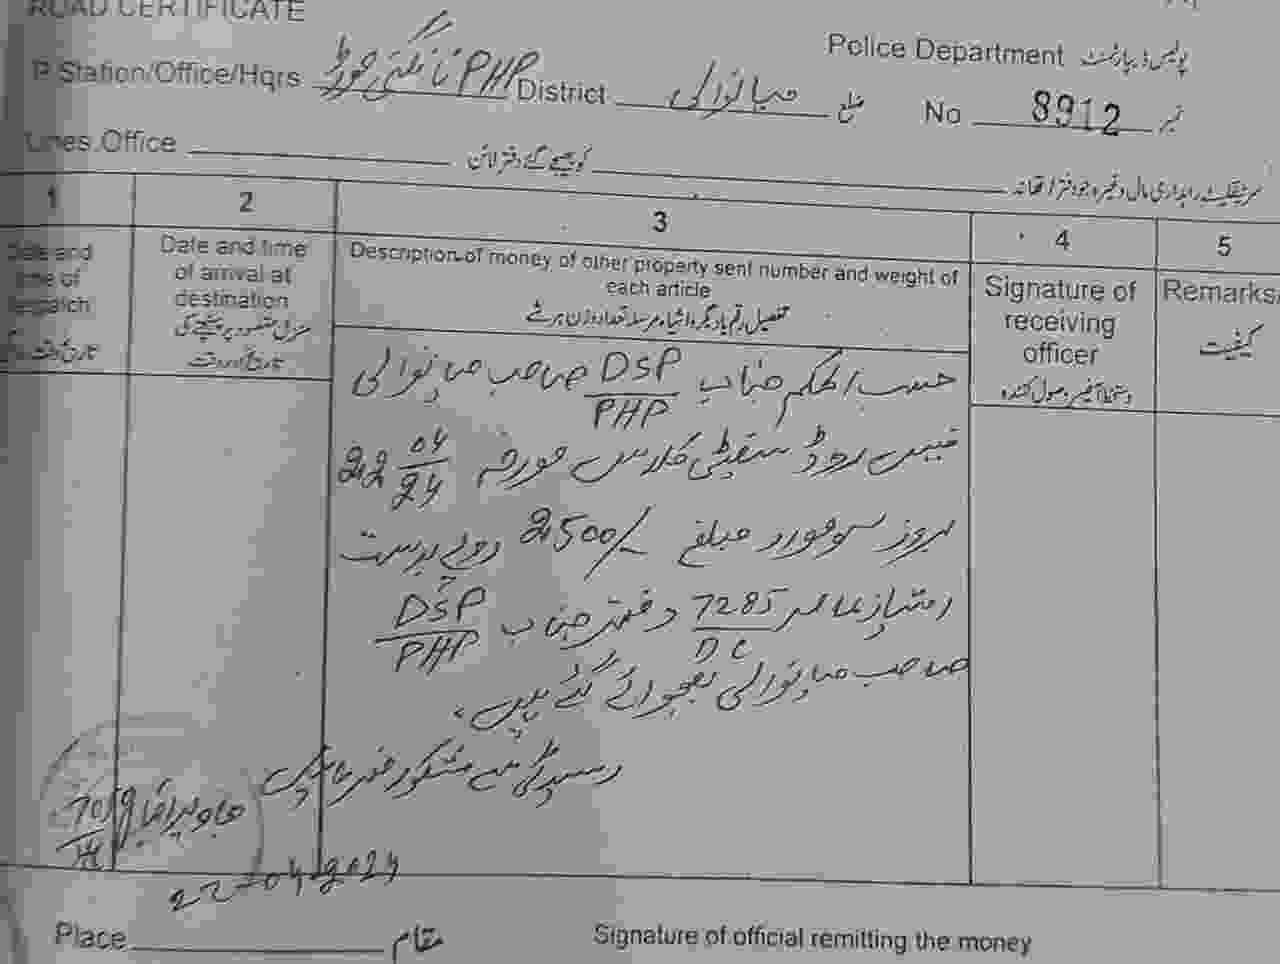 ROAD CERTIFICATE
Police Department پولیس ڈیپارٹمنٹ
P Station/Office/Hqrs PHP District میانوالی ضلع No 8912 نمبر
Lines Office کو بھیجے گئے دفتر لائن سرٹیفکیٹ راہداری مال وغیرہ جو دفتر / تھانہ
1 2 3 4 5
Date and time of despatch
تاریخ
Date and time of arrival at destination
منزل مقصود پر پہنچنے کی تاریخ اور وقت
Description of money of other property sent number and weight of each article
تفصیل رقم یا دیگر اشیاء مرسلہ تعداد وزن ہر شے
Signature of receiving officer
دستخط آفیسر وصول کنندہ
Remarks
کیفیت
حسب الحکم جناب DSP/PHP صاحب میانوالی
فیس روڈ سیفٹی کلاس مورخہ 22 04/24
بروز سوموار مبلغ 2500/- روپے بدست
امتیاز 7285/DC دفتر جناب DSP/PHP
صاحب میانوالی بھجوائے گئے ہیں۔
رسید سے مشکور فرمائیں
جاوید اقبال
22-04-2024
Place مقام Signature of official remitting the money